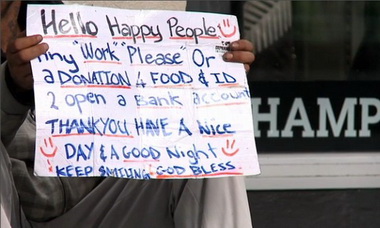 Hello Happy People
Any "Work" "Please" Or
a DONATION 4 FOOD & ID
2 open a Bank account
THANKYOU HAVE A Nice
DAY & A GOOD Night
KEEP SMILING GOD BLESS.
HAMP